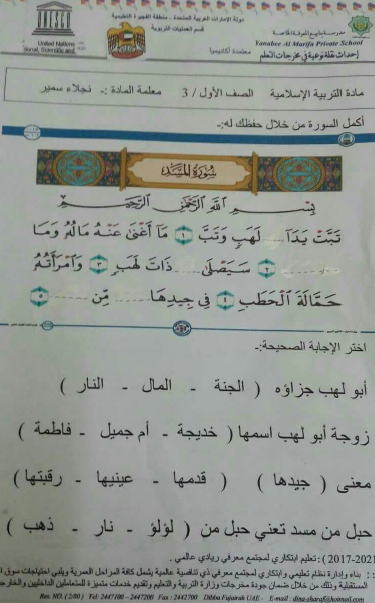 دولة الإمارات العربية المتحدة - منطقة الفجيرة التعليمية
قسم العمليات التربوية
معتمدة أكاديميا
United Nations
Yanabee Al Marifa Private School
إحداث نقلة نوعية في مخرجات التعلم
مادة التربية الإسلامية الصف الأول / 3 معلمة المادة :- نجلاء سمير
أكمل السورة من خلال حفظك له:-
سورة المسد
بسم الله الرحمن الرحيم
تَبَّتْ يَدَآ ..... لَهَبٍ وَتَبَّ ١ مَآ أَغْنَىٰ عَنْهُ مَالُهُۥ وَمَا
........ ٢ سَيَصْلَىٰ ..... ذَاتَ لَهَبٍ ٣ وَٱمْرَأَتُهُۥ
حَمَّالَةَ ٱلْحَطَبِ ٤ فِى جِيدِهَا ..... مِّن ....... ٥
اختر الإجابة الصحيحة:-
أبو لهب جزاؤه ( الجنة - المال - النار )
زوجة أبو لهب اسمها ( خديجة - أم جميل - فاطمة )
معنى ( جيدها ) ( قدمها - عينيها - رقبتها )
حبل من مسد تعني حبل من ( لؤلؤ - نار - ذهب )
2017-2021 ) : تعليم ابتكاري لمجتمع معرفي ريادي عالمي .
: بناء وإدارة نظام تعليمي وابتكاري لمجتمع معرفي ذي تنافسية عالمية يشمل كافة المراحل العمرية ويلبي احتياجات سوق
المستقبلية وذلك من خلال ضمان جودة مخرجات وزارة التربية والتعليم وتقديم خدمات متميزة للمتعاملين الداخليين والخارجيين
Tel: 2447100 - 2447200 Fax : 2442700 Dibba Fujairah UAE - E-mail :